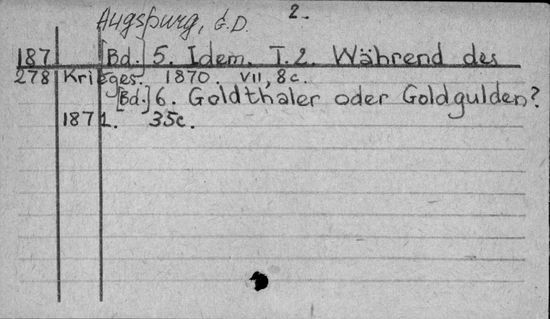 Augsburg, G.D. 2.
187 [Bd.] 5. Idem. T.2. Während des
278 Krieges. 1870. VII, 8c.
[Bd.] 6. Goldthaler oder Goldgulden?
1871. 35c.